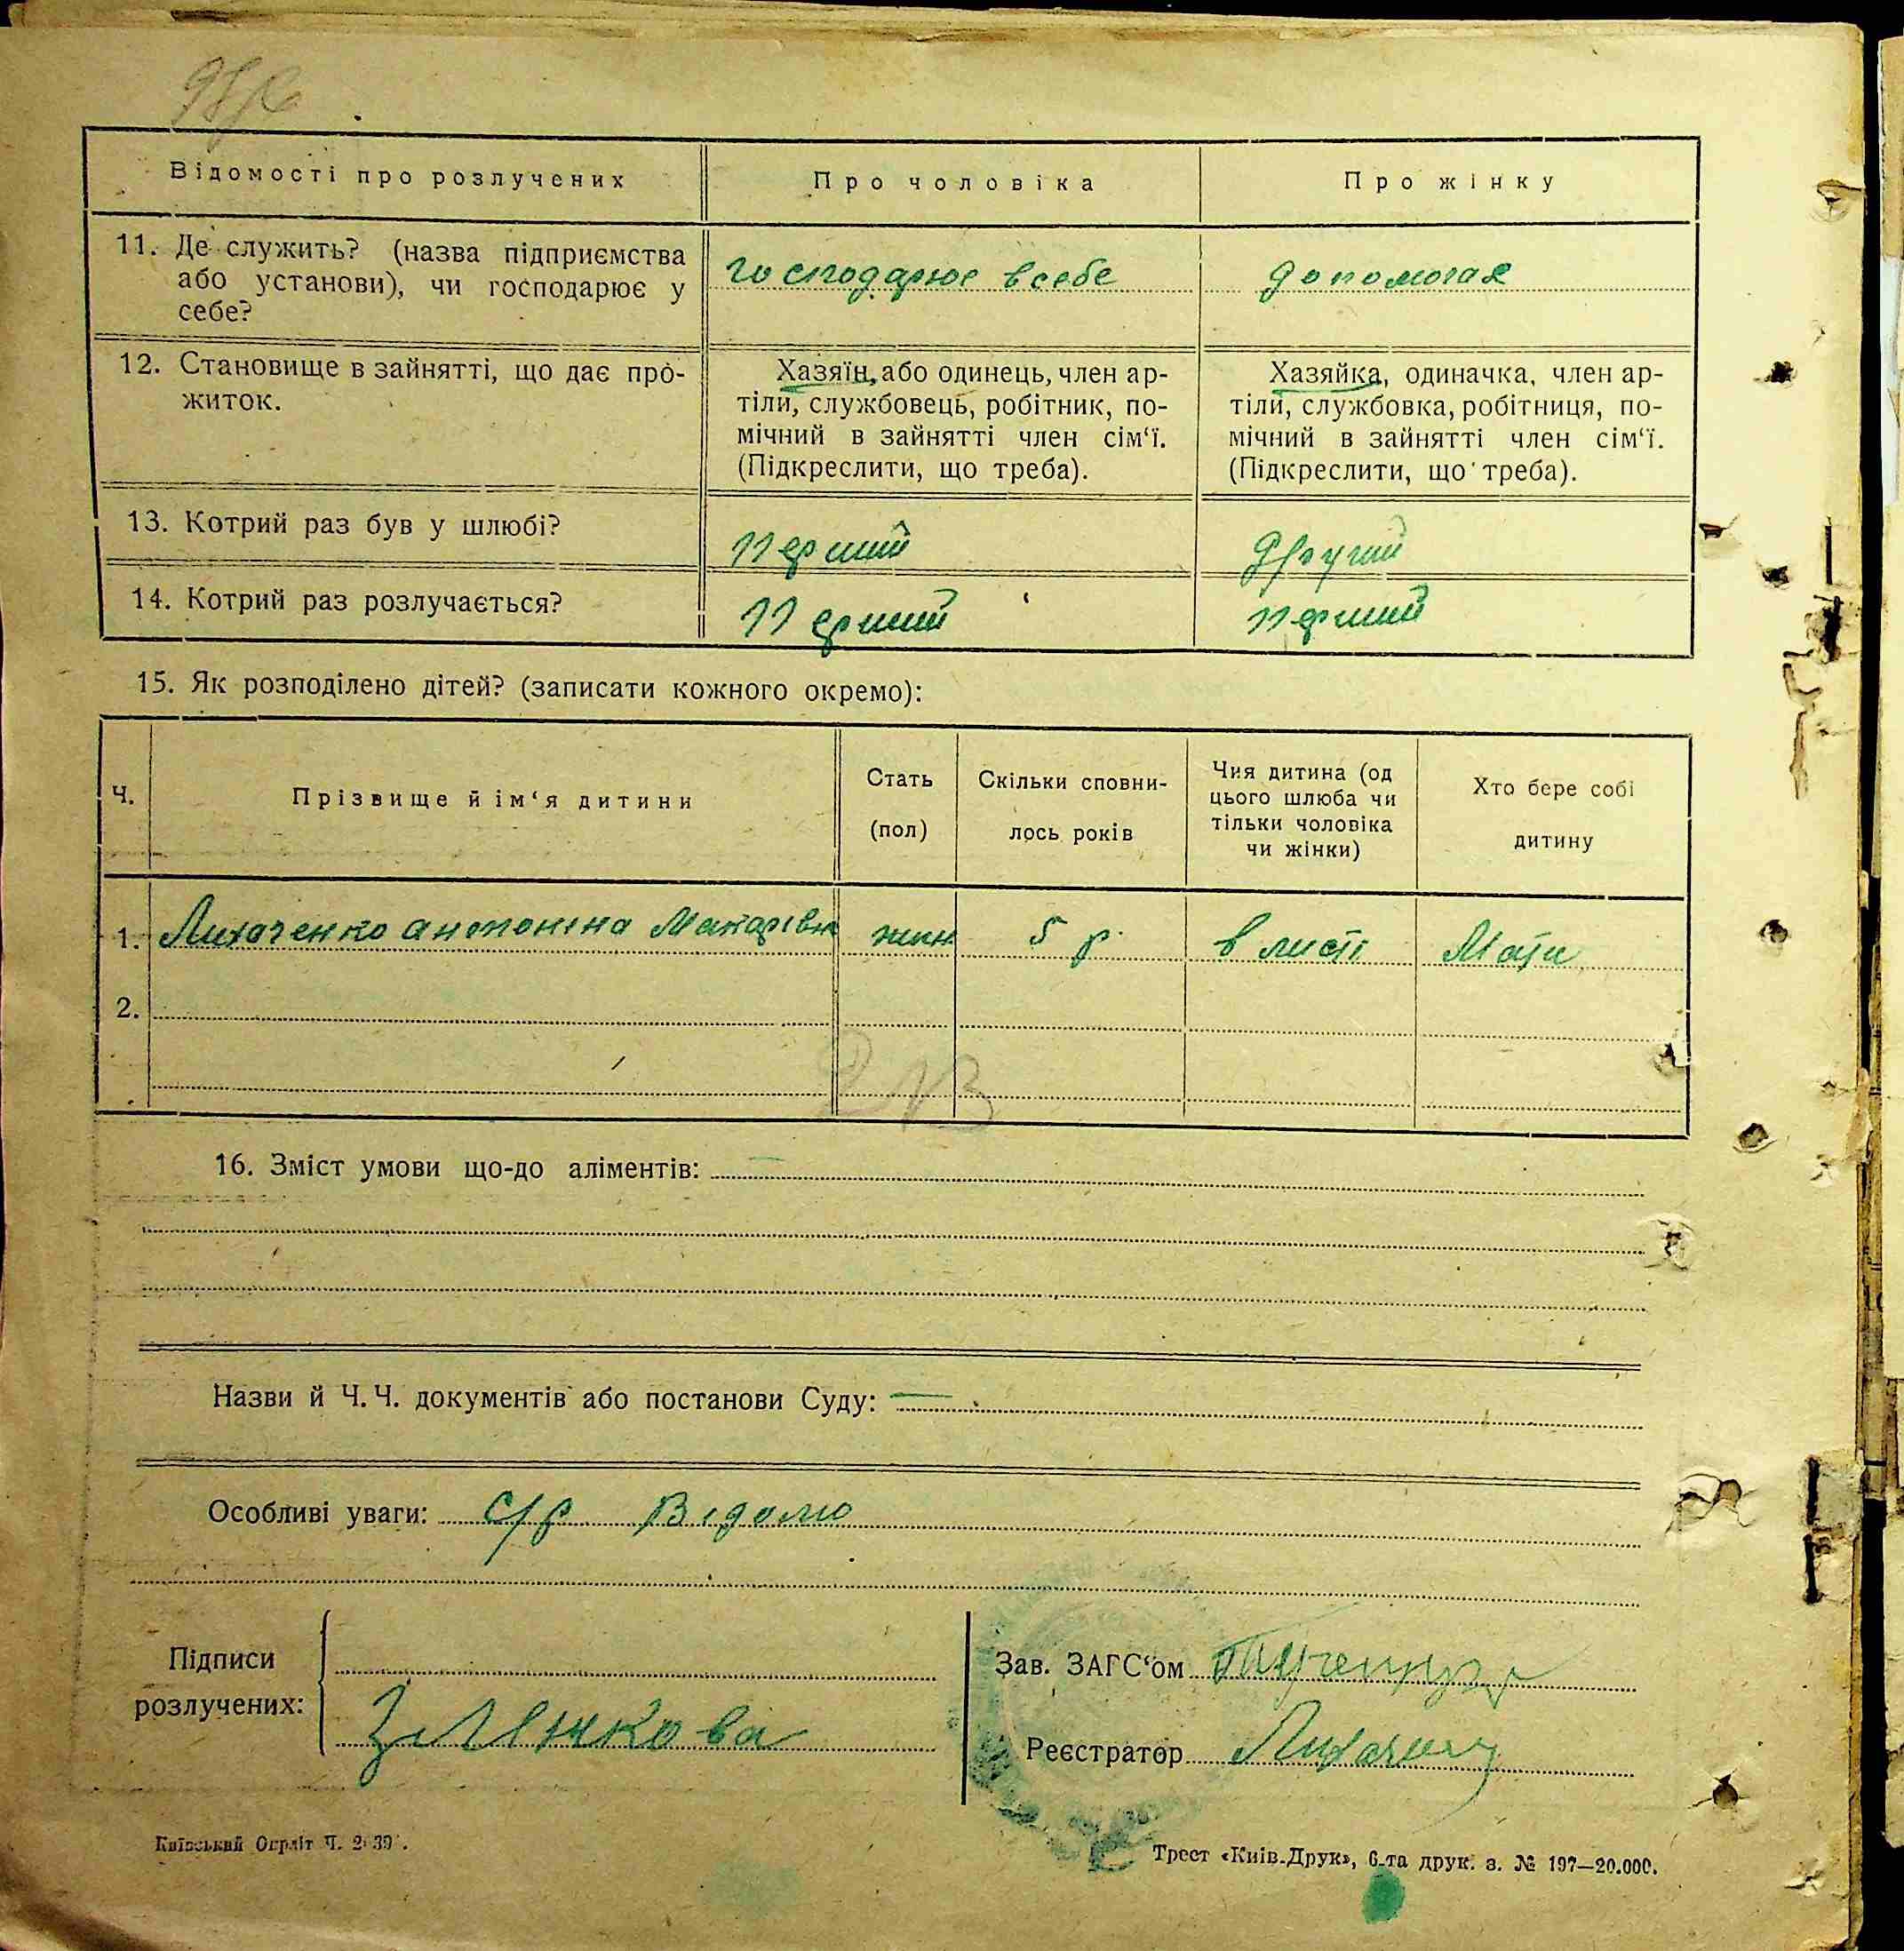 Відомості про розлучених
Про чоловіка
Про жінку
11. Де служить? (назва підприємства
або установи), чи господарює у
себе?
господарює в себе
допомогає
12. Становище в зайнятті, що дає про-
житок.
Хазяїн, або одинець, член ар-
тіли, службовець, робітник, по-
мічний в зайнятті член сім‘ї.
(Підкреслити, що треба).
Хазяйка, одиначка, член ар-
тіли, службовка, робітниця, по-
мічний в зайнятті член сім‘ї.
(Підкреслити, що треба).
13. Котрий раз був у шлюбі?
перший
другий
14. Котрий раз розлучається?
перший
перший
15. Як розподілено дітей? (записати кожного окремо):
Ч.
Прізвище й ім‘я дитини
Стать
(пол)
Скільки сповни-
лось років
Чия дитина (од
цього шлюба чи
тільки чоловіка
чи жінки)
Хто бере собі
дитину
1. Лихаченко Антоніна Макарівн
жін
5 р.
Мати
2.
16. Зміст умови що-до аліментів: —
Назви й Ч. Ч. документів або постанови Суду: —
Особливі уваги: с/р Відомо
Підписи
розлучених:
Зав. ЗАГС‘ом
Реєстратор
Київський Окрліт Ч.
Трест «Київ-Друк», 6-та друк. з. № 197—20.000.